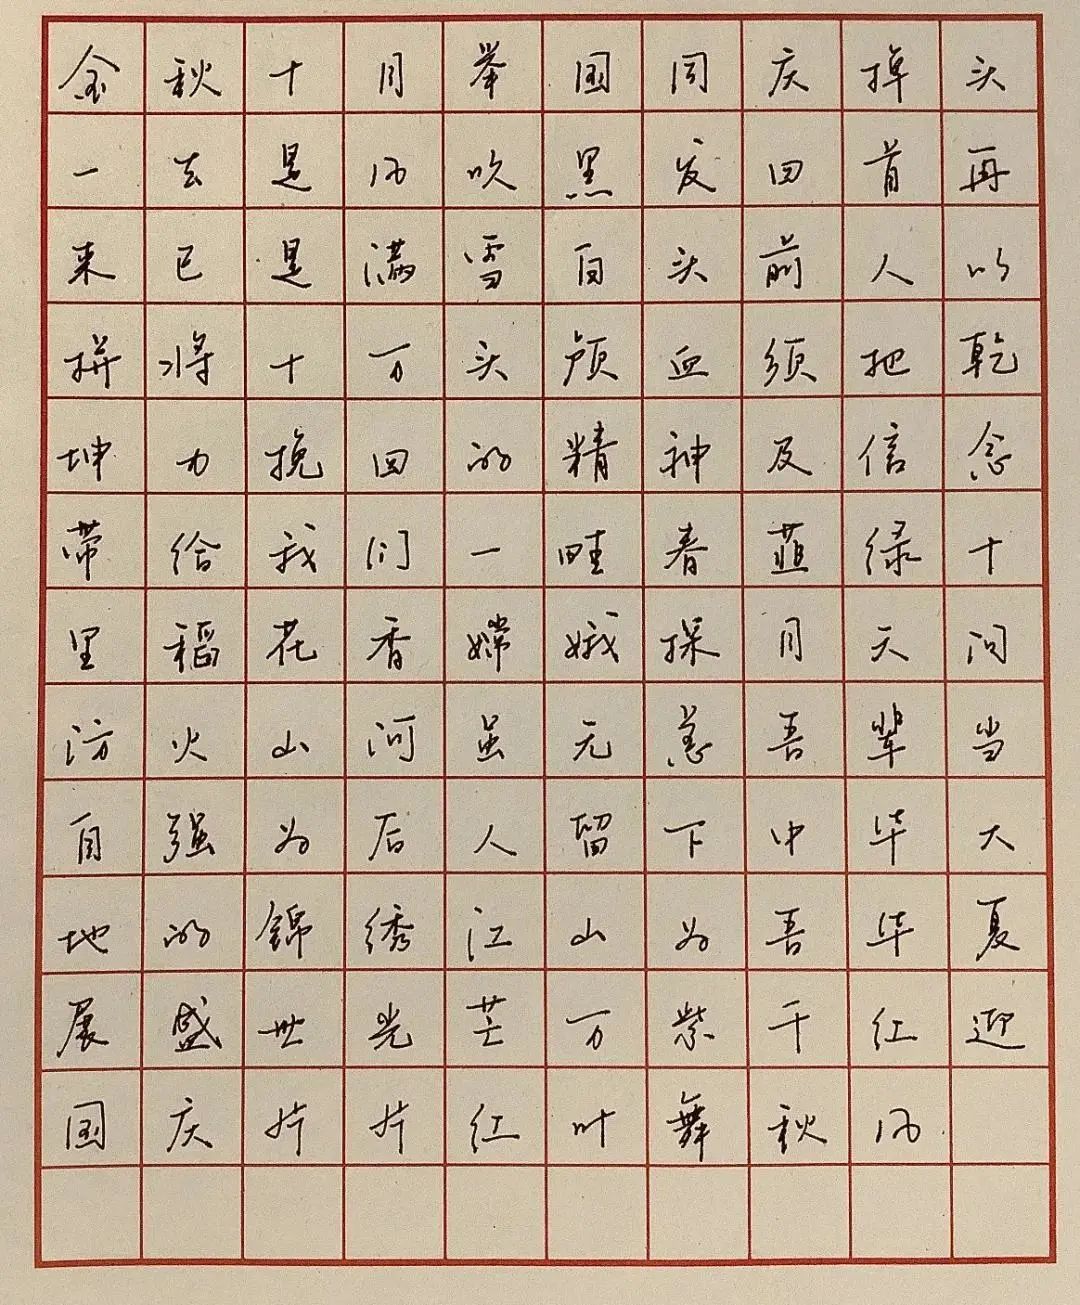 金秋十月举国同庆掉头
一去是风吹黑发回首再
来已是满雪白头前人以
拼将十万头颅血须把乾
坤力挽回的精神及信念
带给我们一畦春韮绿十
里稻花香嫦娥探月天问
访火山河虽无恙吾辈当
自强为后人留下中华大
地的锦绣江山为吾华夏
展盛世光芒万紫千红迎
国庆片片红叶舞秋风